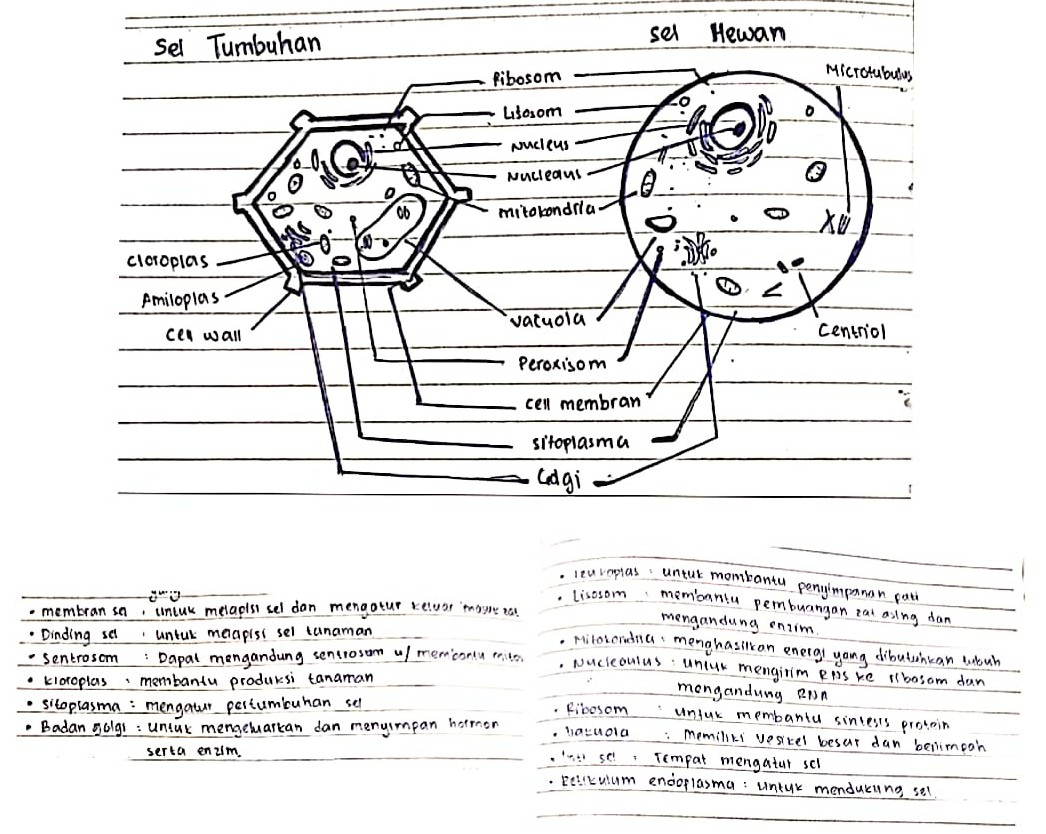 Sel Tumbuhan
sel Hewan
Ribosom
Microtubulus
Lisosom
Nucleus
Nucleous
mitokondria
cloroplas
Amiloplas
cell wall
vacuola
Centriol
Peroxisom
cell membran
sitoplasma
Golgi
• membran sel : untuk melapisi sel dan mengatur keluar masuk zat
• Dinding sel : untuk melapisi sel tanaman
• Sentrosom : Dapat mengandung sentrosom u/ membantu
• kloroplas : membantu produksi tanaman
• sitoplasma : mengatur pertumbuhan sel
• Badan golgi : untuk mengeluarkan dan menyimpan hormon
serta enzim
• leukoplas : untuk membantu penyimpanan pati
• Lisosom : membantu pembuangan zat asing dan
mengandung enzim.
• Mitokondria : menghasilkan energi yang dibutuhkan tubuh
• Nucleoulus : untuk mengirim RNS ke ribosom dan
mengandung RNA
• Ribosom : untuk membantu sintesis protein
• Vacuola : Memiliki vesikel besar dan berlimpah
• Inti sel : Tempat mengatur sel
• Retikulum endoplasma : untuk mendukung sel.